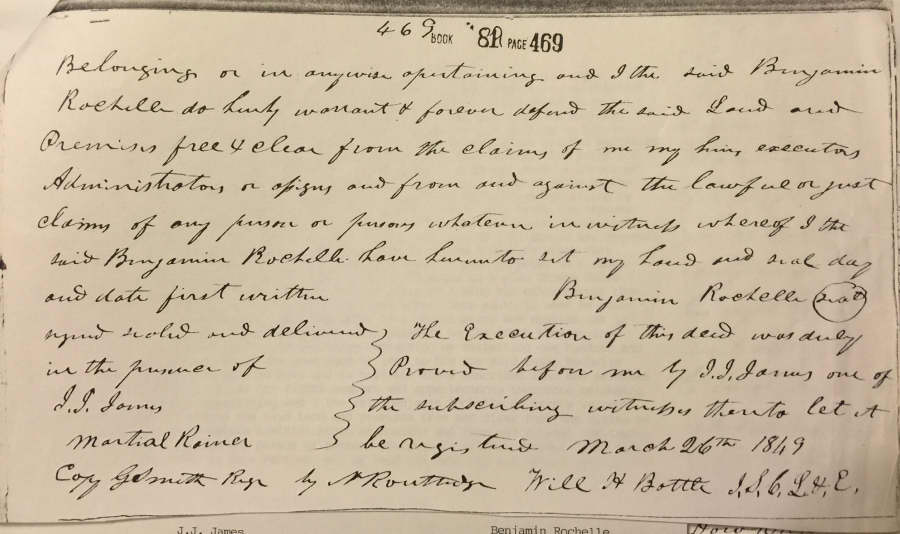 469 BOOK 81 PAGE 469
Belonging or in anywise apertaining and I the said Benjamin
Rochelle do herby warrant & forever defend the said Land and
Premises free & clear from the claims of me my heirs executors
Administrators or assigns and from and against the lawful or just
claims of any person or persons whatever in witness whereof I the
said Benjamin Rochelle have hereunto set my hand and seal day
and date first written
Benjamin Rochelle seal
signd seald and deliverd
in the presence of
J.J. James
Martial Rainer
The Execution of this deed was duly
Proved before me by J.J. James one of
the subscribing witnesses thereto let it
be registerd March 26th 1849
Copy Smith Regr by Routledge Will H Battle J.S.C.L.&E.
J.J. James
Benjamin Rochelle